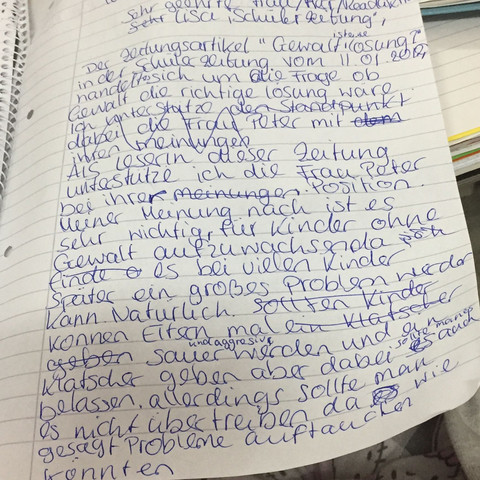 Sehr geehrte Frau/Herr
Sehr Lisa "Schülerzeitung",
Der Zeitungsartikel "Gewalt ist eine lösung?"
in der Schülerzeitung vom 11.01.2012,
handelt sich um die Frage ob
Gewalt die richtige lösung wäre.
Ich unterstütze den Standpunkt
dabei die Frau Peter mit
ihren meinungen
Als Leserin dieser Zeitung
unterstütze ich die Frau Peter
bei ihrer meinungen Position.
Meiner Meinung nach ist es
sehr wichtig für Kinder ohne
Gewalt aufzuwachsen da
finde es bei vielen Kinder
später ein großes Problem werden
kann Natürlich sollten Kinder
können Eltern mal ein klatscher
geben sauer und aggresiv werden und
klatscher geben aber dabei sollte es auch
belassen, allerdings sollte man
es nicht übertreiben da wie
gesagt Probleme auftauchen
könnten